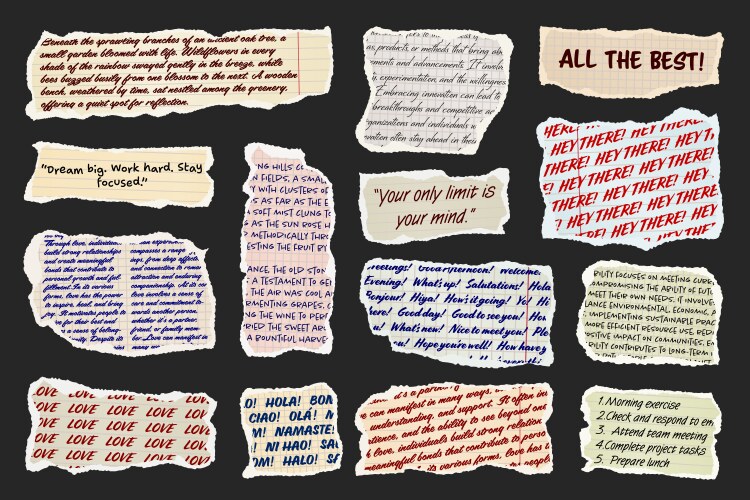 Beneath the sprawling branches of an ancient oak tree, a
small garden bloomed with life. Wildflowers in every
shade of the rainbow swayed gently in the breeze, while
bees buzzed busily from one blossom to the next. A wooden
bench, weathered by time, sat nestled among the greenery,
offering a quiet spot for reflection.
as, products, or methods that bring abo
ements and advancements. It involv
, experimentation, and the willingness
Embracing innovation can lead to
breakthroughs and competitive ad
rganizations and individuals
vation often stay ahead in their
ALL THE BEST!
"Dream big. Work hard. Stay
focused."
NG HILLS
N FIELDS, A SMALL
Y WITH CLUSTERS OF
S AS FAR AS THE E
SOFT MIST CLUNG TO
AS THE SUN ROSE H
METHODICALLY THR
ESTING THE FRUIT BY
ANCE THE OLD STON
A TESTAMENT TO GE
THE AIR WAS COOL A
RMENTING GRAPES.
NG THE WINE TO PER
RIED THE SWEET AR
A BOUNTIFUL HARVE
"Your only limit is
your mind."
HERE! HEY THERE! HEY
HEY THERE! HEY TH
HEY THERE! HEY THERE
HEY THERE! HEY THERE!
HEY THERE! HEY THERE!
HEY THERE! HEY THERE!
HEY THERE! HEY
Through love, individua
build strong relationships
and create meaningful
bonds that contribute to
personal growth and ful-
fillment. In its various
forms, love has the power
to inspire, heal, and bring
joy. It motivates people to
for their best and
a sense of belong-
Despite its
companies a range
ings, from deep affec
and connection to roman
attraction and understan
companionship. At its cor
love involves a sense of
care and commitment to
ward another person,
whether it's a partner,
friend, or family mem-
ber. Love can manifest in
many
Greetings! Good afternoon! Welcome.
Evening! What's up! Salutations! Hola
Bonjour! Hiya! How's it going! Yo! Hi
here! Good day! Good to see you! How
u! What's new! Nice to meet you! Ple
u! Hope you're well! How have y
RILITY FOCUSES ON MEETING CURR
OMPROMISING THE ABILITY OF FUT
MEET THEIR OWN NEEDS. IT INVOLVE
LANCE ENVIRONMENTAL, ECONOMIC, A
IMPLEMENTING SUSTAINABLE PRAC
MORE EFFICIENT RESOURCE USE, RED
OSITIVE IMPACT ON COMMUNITIES, EN
BILITY CONTRIBUTES TO LONG-TERM
LOVE LOVE LOVE LOVE LOVE
LOVE LOVE LOVE LOVE LOVE
LOVE LOVE LOVE LOVE LOVE
LOVE LOVE LOVE LOVE LOVE
LOVE LOVE LOVE LOVE LOVE
O! HOLA! BON
CIAO! OLÁ! N
M! NAMASTE!
! NI HAO! SA
OM! HALO! SA
It's a partn
e can manifest in many ways,
understanding, and support. It often in
tience, and the ability to see beyond one
h love, individuals build strong relation
meaningful bonds that contribute to perso
its various forms, love has t
people
1. Morning exercise
2. Check and respond to em
3. Attend team meeting
4. Complete project tasks
5. Prepare lunch